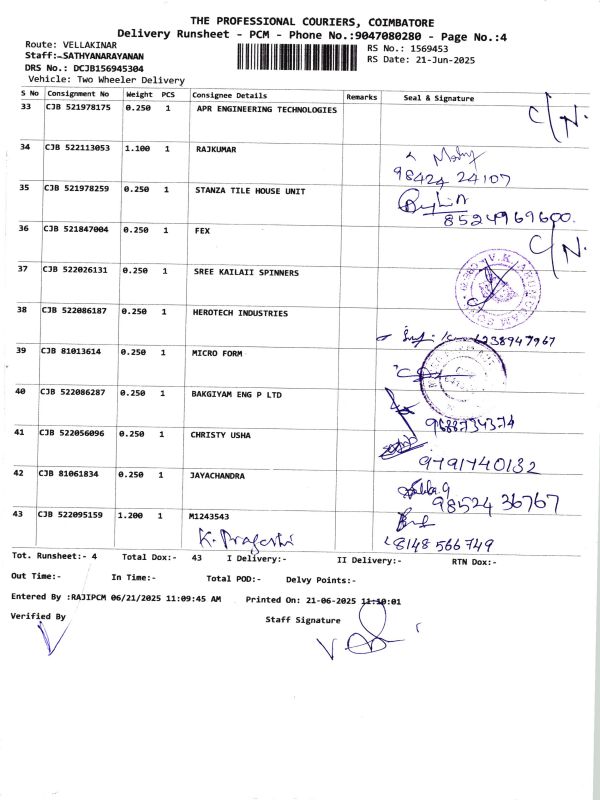 THE PROFESSIONAL COURIERS, COIMBATORE
Delivery Runsheet - PCM - Phone No.:9047080280 - Page No.:4
Route: VELLAKINAR RS No.: 1569453
Staff:-SATHYANARAYANAN RS Date: 21-Jun-2025
DRS No.: DCJB156945304
Vehicle: Two Wheeler Delivery
S No Consignment No Weight PCS Consignee Details Remarks Seal & Signature
33 CJB 521978175 0.250 1 APR ENGINEERING TECHNOLOGIES C/N.
34 CJB 522113053 1.100 1 RAJKUMAR
98424 24107
35 CJB 521978259 0.250 1 STANZA TILE HOUSE UNIT
8524969600.
36 CJB 521847004 0.250 1 FEX C/N.
37 CJB 522026131 0.250 1 SREE KAILAII SPINNERS
38 CJB 522086187 0.250 1 HEROTECH INDUSTRIES
6238947967
39 CJB 81013614 0.250 1 MICRO FORM
40 CJB 522086287 0.250 1 BAKGIYAM ENG P LTD
9688734374
41 CJB 522056096 0.250 1 CHRISTY USHA
9791740132
42 CJB 81061834 0.250 1 JAYACHANDRA
98524 36767
43 CJB 522095159 1.200 1 M1243543
K. Pragathi 8148 566749
Tot. Runsheet:- 4 Total Dox:- 43 I Delivery:- II Delivery:- RTN Dox:-
Out Time:- In Time:- Total POD:- Delvy Points:-
Entered By :RAJIPCM 06/21/2025 11:09:45 AM Printed On: 21-06-2025 11:10:01
Verified By Staff Signature